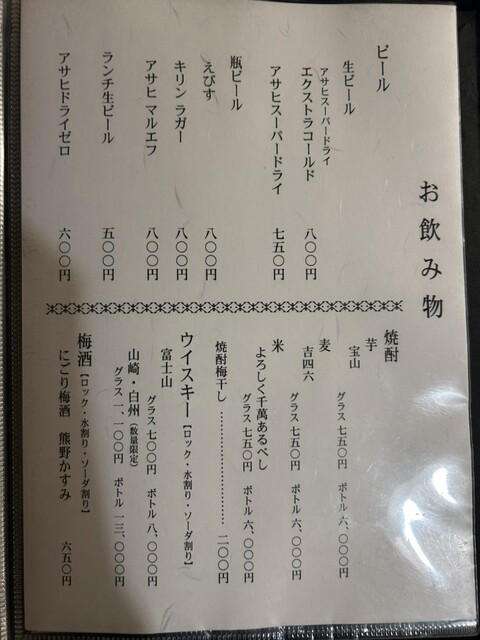 お飲み物
ビール
生ビール
アサヒスーパードライ
エクストラコールド 八〇〇円
アサヒスーパードライ 七五〇円
瓶ビール
えびす 八〇〇円
キリン ラガー 八〇〇円
アサヒ マルエフ 八〇〇円
ランチ生ビール 五〇〇円
アサヒドライゼロ 六〇〇円
焼酎
芋
宝山
グラス 七五〇円 ボトル 六、〇〇〇円
麦
吉四六
グラス 七五〇円 ボトル 六、〇〇〇円
米
よろしく千萬あるべし
グラス 七五〇円 ボトル 六、〇〇〇円
焼酎梅干し………………………二〇〇円
ウイスキー【ロック・水割り・ソーダ割り】
富士山
グラス 七〇〇円 ボトル 八、〇〇〇円
山崎・白州(数量限定)
グラス 一、一〇〇円 ボトル 一三、〇〇〇円
梅酒【ロック・水割り・ソーダ割り】
にごり梅酒 熊野かすみ 六五〇円